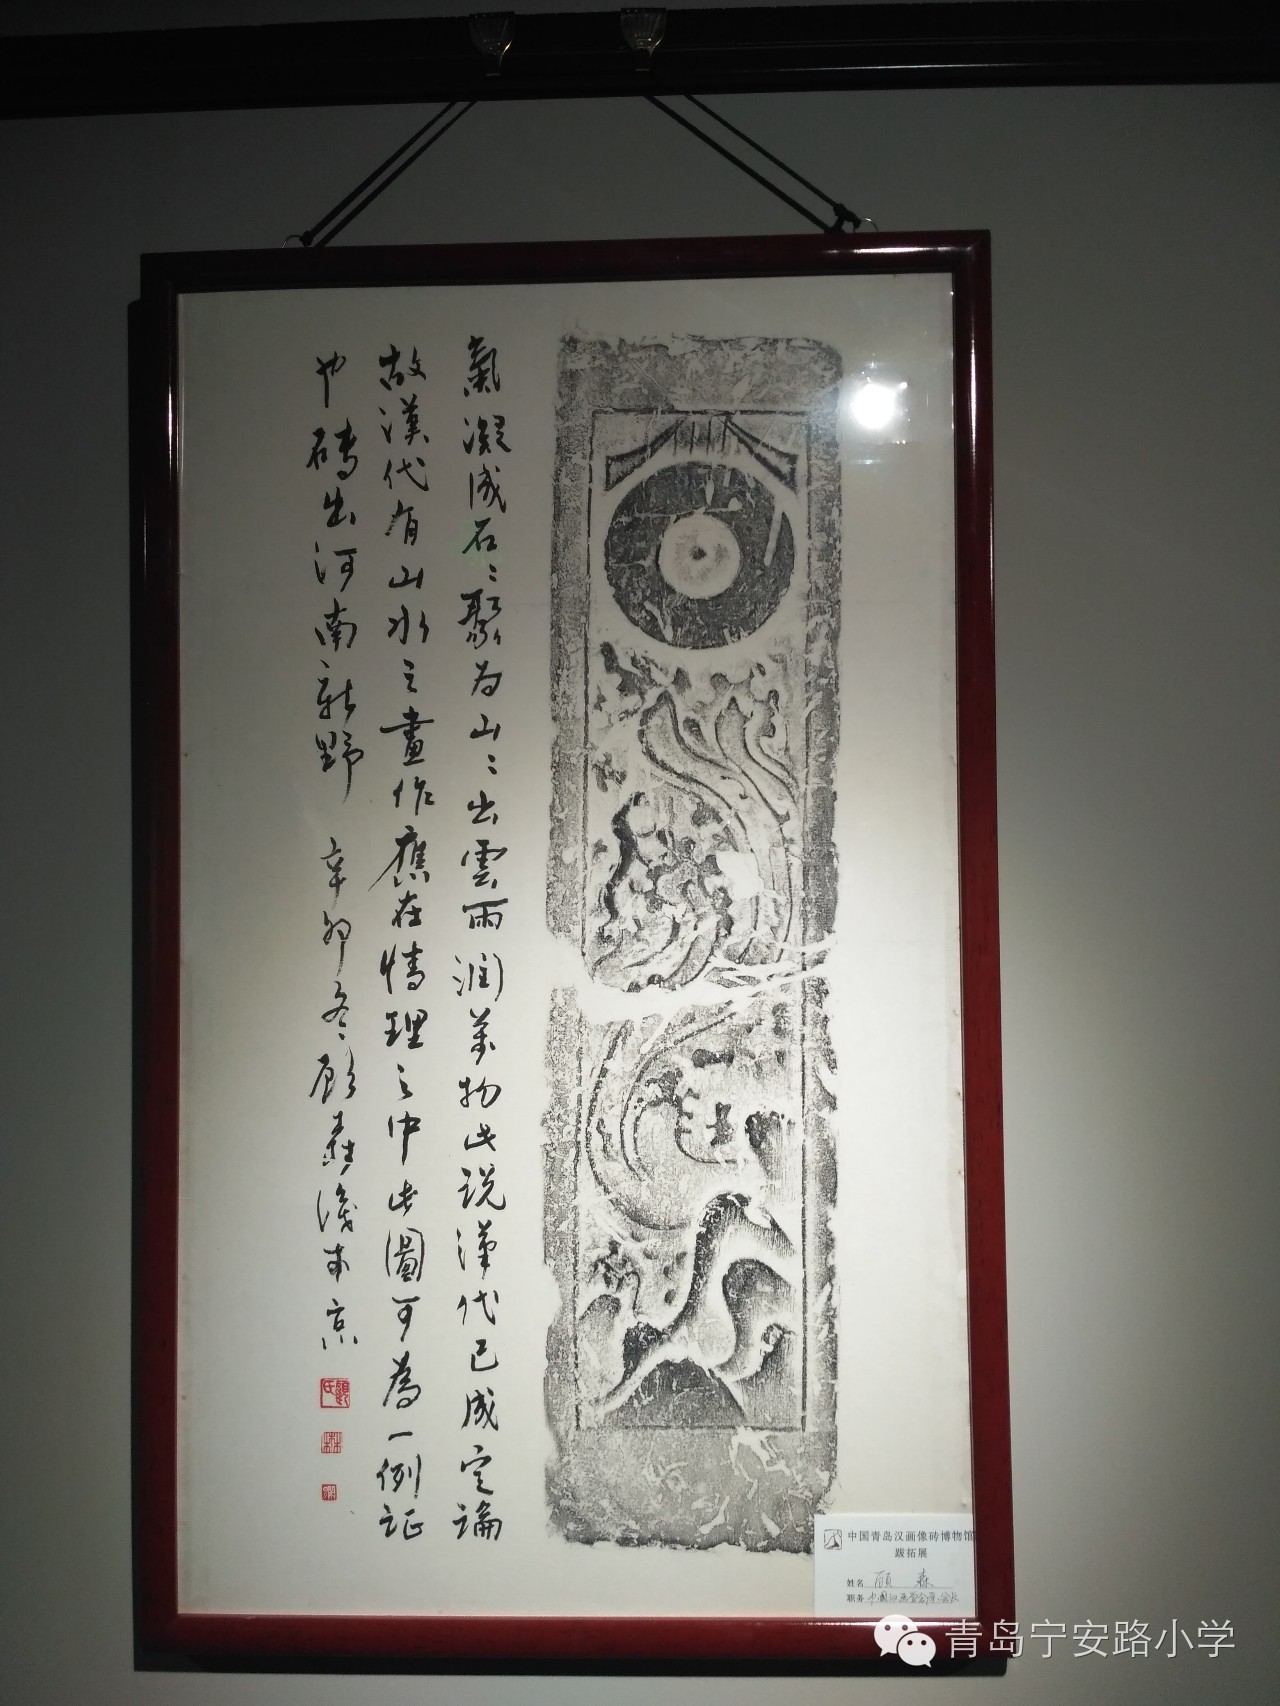 氣凝成石〻聚为山〻出雲雨润萬物此说漢代已成定論
故漢代有山水之畫作應在情理之中此圖可為一例证
也磚出河南新野 辛卯冬 顧森識于京
中国青岛汉画像砖博物馆
跋拓展
姓名 顾森
职务 中国汉画学会原会长
青岛宁安路小学